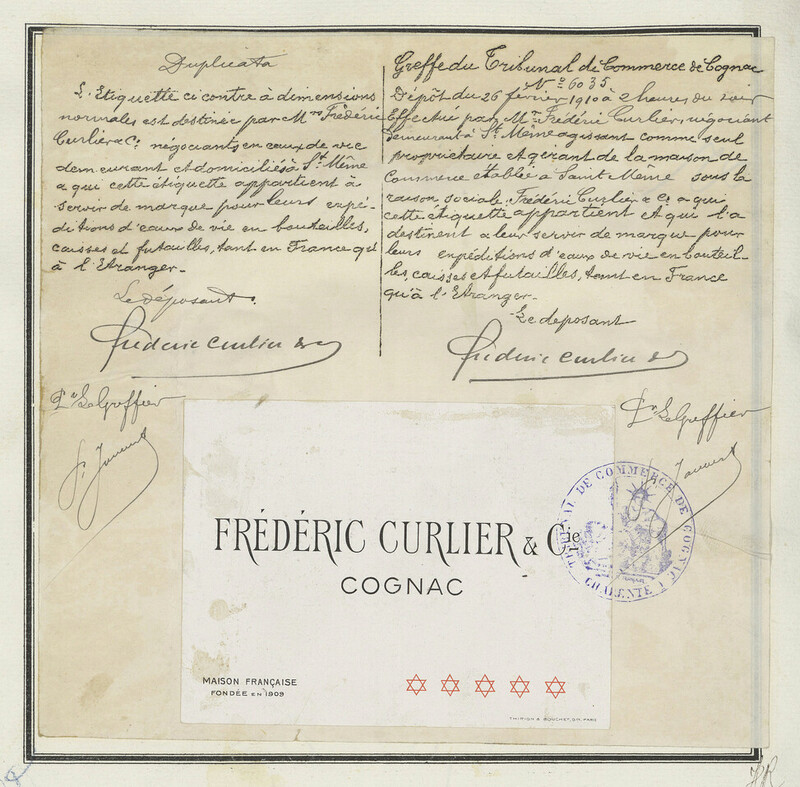 Duplicata
L'Etiquette ci contre à dimensions
normales est destinée par Mrs Frédéric
Curlier & Co. négociants en eaux de vie
demeurant et domiciliés à St Même
a qui cette étiquette appartient à
servir de marque pour leurs expé-
ditions d'eaux de vie en bouteilles,
caisses et futailles, tant en France qu'
à l'Etranger.-
Le déposant.
Frédéric Curlier &
Pr Le Greffier
Greffe du Tribunal de Commerce de Cognac
No 6035
Dépôt du 26 février 1910 à 2 heures du soir
Effectué par Mr Frédéric Curlier, négociant
demeurant à St Même agissant comme seul
propriétaire et gérant de la maison de
Commerce établie à Saint Même sous la
raison sociale Frédéric Curlier & Co. a qui
cette étiquette appartient et qui l'a
destinent a leur servir de marque pour
leurs expéditions d'eaux de vie en bouteil-
les, caisses et futailles, tant en France
qu'à l'Etranger.-
Le deposant
Frédéric Curlier &
Pr Le Greffier
TRIBUNAL DE COMMERCE DE COGNAC
CHARENTE
FRÉDÉRIC CURLIER & Cie
COGNAC
MAISON FRANÇAISE
FONDÉE EN 1909